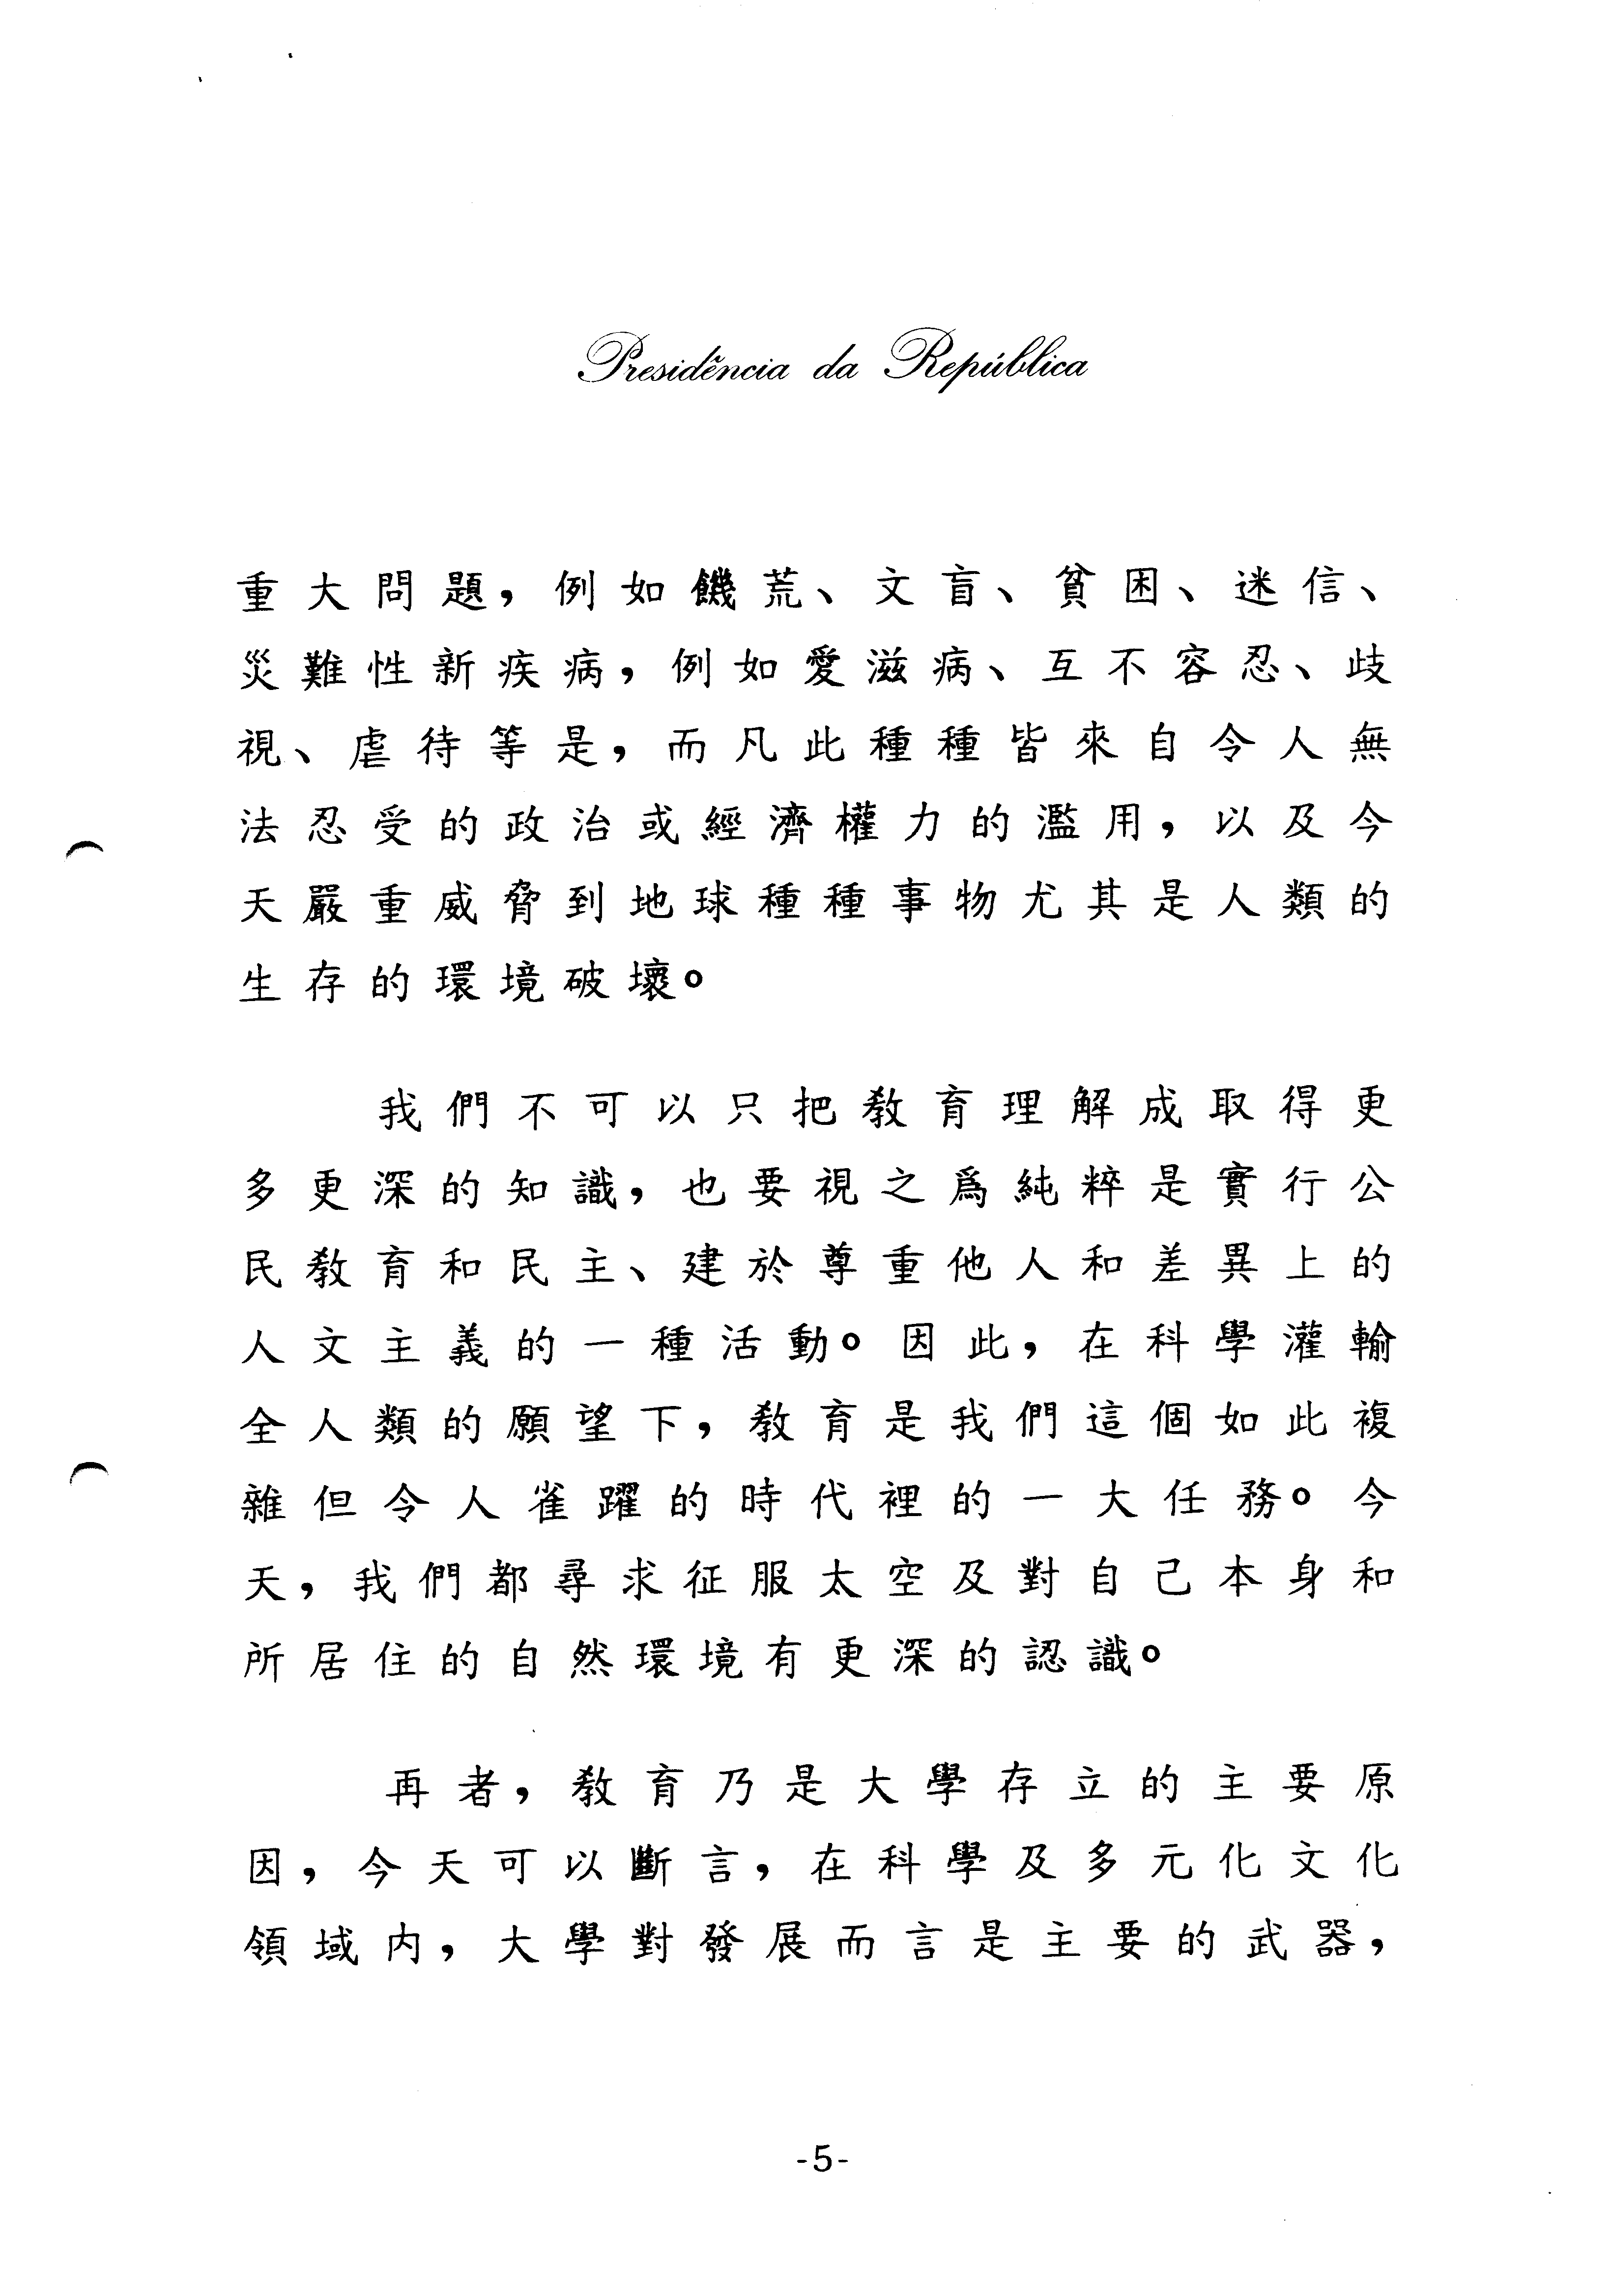 Presidência da República
重大問題，例如饑荒、文盲、貧困、迷信、
災難性新疾病，例如愛滋病、互不容忍、歧
視、虐待等是，而凡此種種皆來自令人無
法忍受的政治或經濟權力的濫用，以及今
天嚴重威脅到地球種種事物尤其是人類的
生存的環境破壞。
我們不可以只把教育理解成取得更
多更深的知識，也要視之爲純粹是實行公
民教育和民主、建於尊重他人和差異上的
人文主義的一種活動。因此，在科學灌輸
全人類的願望下，教育是我們這個如此複
雜但令人雀躍的時代裡的一大任務。今
天，我們都尋求征服太空及對自己本身和
所居住的自然環境有更深的認識。
再者，教育乃是大學存立的主要原
因，今天可以斷言，在科學及多元化文化
領域内，大學對發展而言是主要的武器，
-5-